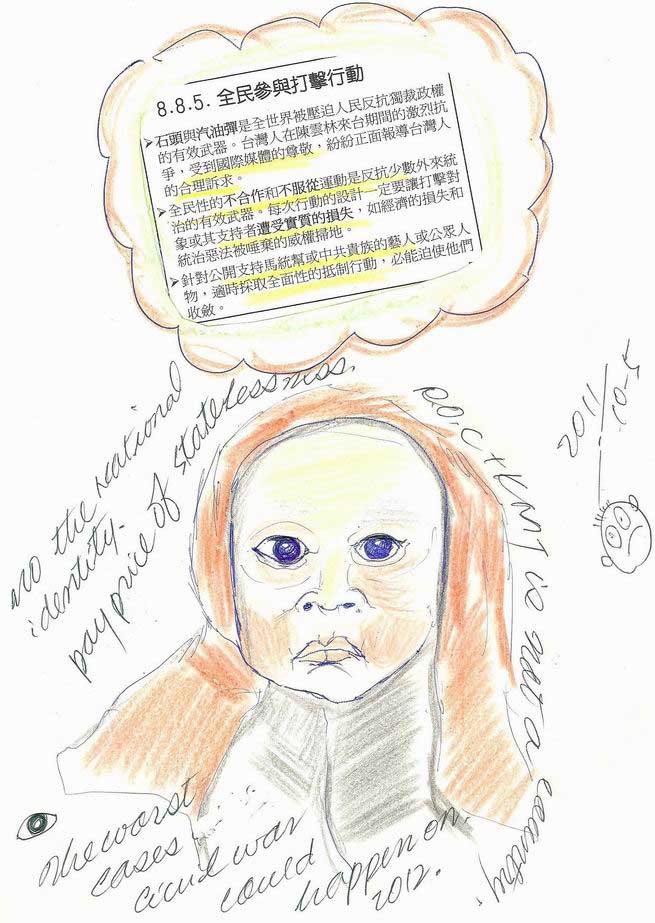 8.8.5. 全民參與打擊行動
➤石頭與汽油彈是全世界被壓迫人民反抗獨裁政權
的有效武器。台灣人在陳雲林來台期間的激烈抗
爭，受到國際媒體的尊敬，紛紛正面報導台灣人
的合理訴求。
➤全民性的不合作和不服從運動是反抗少數外來統
治的有效武器。每次行動的設計一定要讓打擊對
象或其支持者遭受實質的損失，如經濟的損失和
統治惡法被唾棄的威權掃地。
➤針對公開支持馬統幫或中共貴族的藝人或公眾人
物，適時採取全面性的抵制行動，必能迫使他們
收斂。
no the national
identity.
pay price of statelessness.
R.O.C + KMT is not a country.
2011/
10-5
The worst
cases
civil war
could
happen on.
2012.